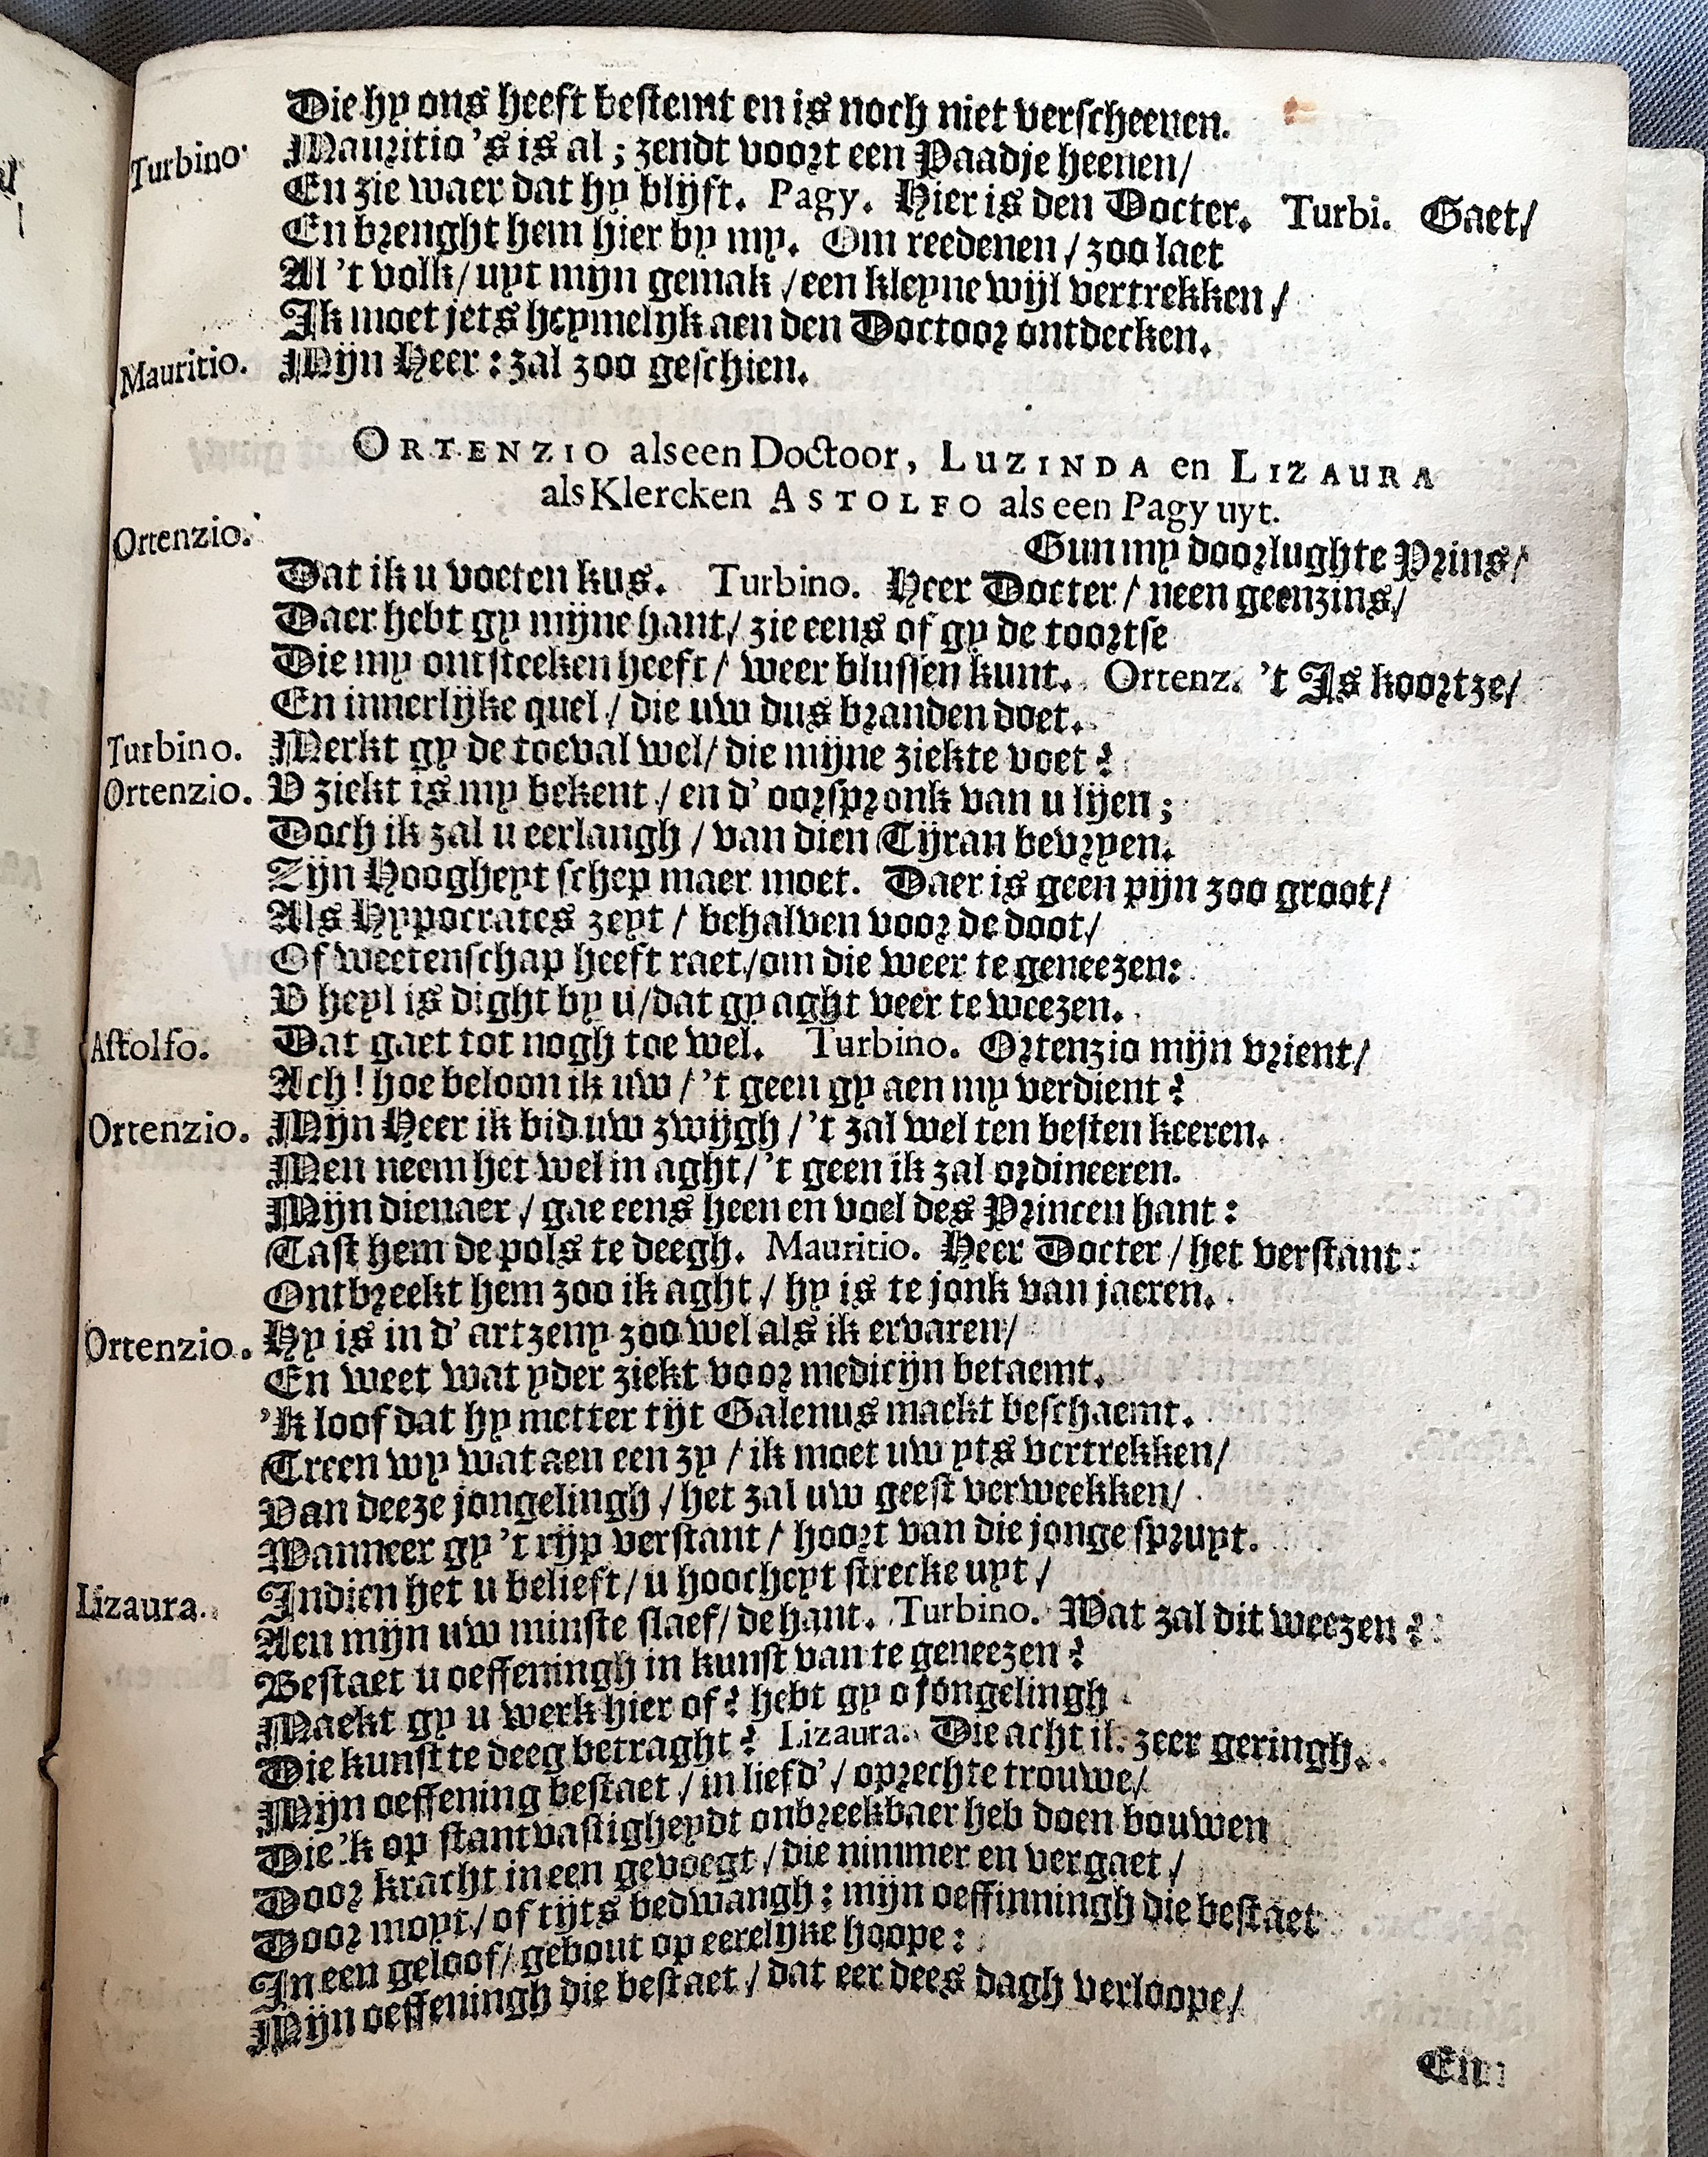 Die hy ons heeft bestemt en is noch niet verscheenen.
Turbino. Mauritio 's is al ; zendt voort een Paadje heenen/
En zie waer dat hy blijft. Pagy. Hier is den Docter. Turbi. Gaet/
En brenght hem hier by my. Om reedenen / zoo laet
Al 't volk/ uyt mijn gemak / een kleyne wijl vertrekken /
Ik moet jets heymelijk aen den Doctoor ontdecken.
Mauritio. Mijn Heer : zal zoo geschien.
ORTENZIO als een Doctoor, LUZINDA en LIZAURA
als Klercken ASTOLFO als een Pagy uyt.
Ortenzio. Gun my doorlughte Prins/
Dat ik u voeten kus. Turbino. Heer Docter / neen geenzins/
Daer hebt gy mijne hant/ zie eens of gy de toortse
Die my ontsteeken heeft / weer blussen kunt. Ortenz. 't Is koortze/
En innerlijke quel / die uw dus branden doet.
Turbino. Merkt gy de toeval wel/ die mijne ziekte voet ?
Ortenzio. V ziekt is my bekent / en d' oorspronk van u lijen ;
Doch ik zal u eerlangh / van dien Tijran bevryen.
Zijn Hoogheyt schep maer moet. Daer is geen pijn zoo groot/
Als Hypocrates zeyt / behalven voor de doot/
Of weetenschap heeft raet/om die weer te geneezen:
V heyl is dight by u/dat gy aght veer te weezen.
Astolfo. Dat gaet tot nogh toe wel. Turbino. Ortenzio mijn vrient/
Ach! hoe beloon ik uw / 't geen gy aen my verdient ?
Ortenzio. Mijn Heer ik bid uw zwijgh / 't zal wel ten besten keeren.
Men neem het wel in aght/ 't geen ik zal ordineeren.
Mijn dienaer / gae eens heen en voel des Princen hant :
Tast hem de pols te deegh. Mauritio. Heer Docter / het verstant
Ontbreekt hem zoo ik aght / hy is te jonk van jaeren.
Ortenzio. Hy is in d' artzeny zoo wel als ik ervaren/
En weet wat yder ziekt voor medicijn betaemt.
'k loof dat hy metter tijt Galenus maekt beschaemt.
Treen wy wat aen een zy / ik moet uw yts vertrekken/
Van deeze jongelingh / het zal uw geest verweekken/
Wanneer gy 't rijp verstant / hoort van die jonge spruyt.
Lizaura. Indien het u belieft/ u hoocheyt strecke uyt /
Aen mijn uw minste slaef/ de hant. Turbino. Wat zal dit weezen ?
Bestaet u oeffeningh in kunst van te geneezen ?
Maekt gy u werk hier of ? hebt gy o jongelingh
Die kunst te deeg betraght ? Lizaura. Die acht ik zeer geringh.
Mijn oeffening bestaet / in liefd' / oprechte trouwe/
Die 'k op stantvastigheydt onbreekbaer heb doen bouwen
Door kracht in een gevoegt / die nimmer en vergaet /
Door moyt / of tijts bedwangh ; mijn oeffinningh die bestaet
In een geloof/ gebout op eerelijke hoope :
Mijn oeffeningh die bestaet / dat eer dees dagh verloope/